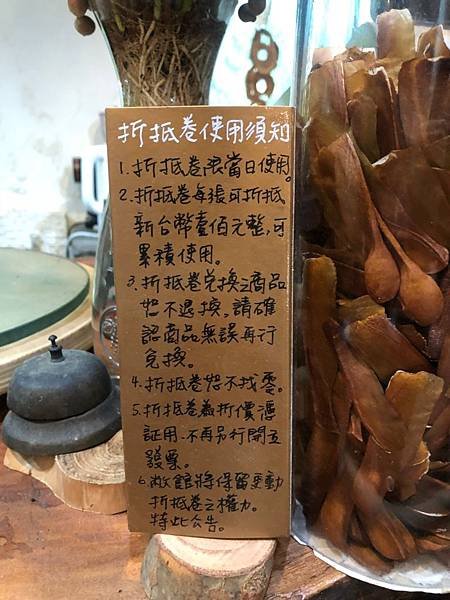 折抵卷使用須知
1. 折抵卷限當日使用。
2. 折抵卷每張可折抵
新台幣壹佰元整,可
累積使用。
3. 折抵卷兌換之商品
恕不退換。請確
認商品無誤再行
兌換。
4. 折抵卷恕不找零。
5. 折抵卷為折價憑
証用,不再另行開立
發票。
6. 敝館將保留更動
折抵卷之權力。
特此公告。